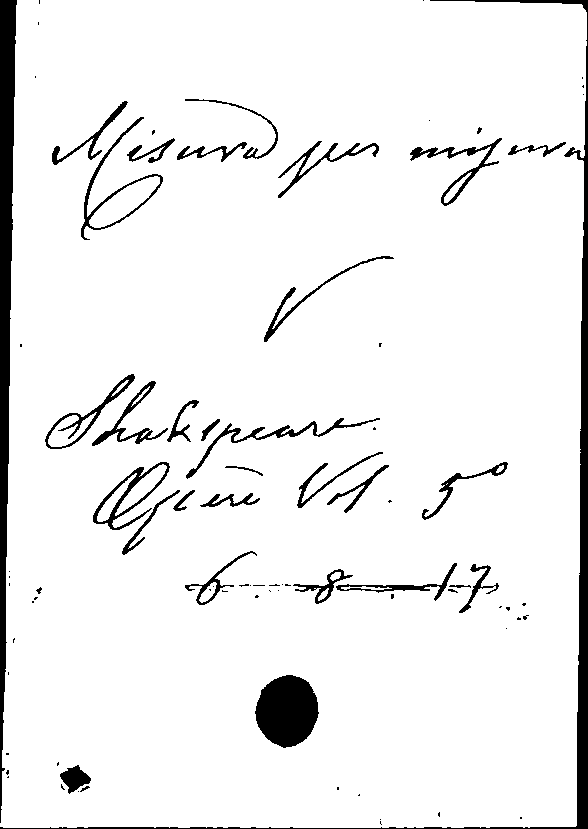 Misura per misura
V
Shakspeare.
Opere Vol. 5º
6 . 8 . 17